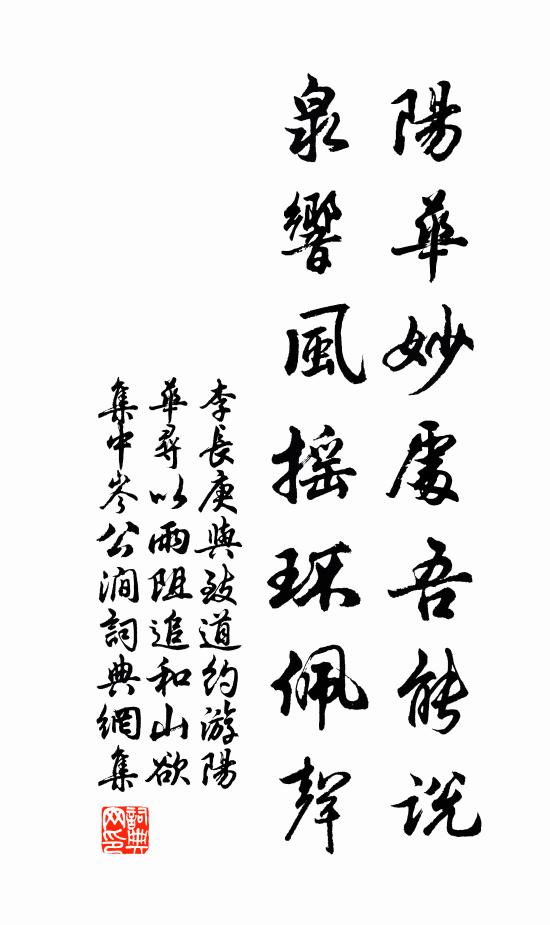 陽華妙處吾能說
泉響風搖环佩聲
李長庚與致道約游陽
華尋以雨阻追和山欲
集中岑公澗詞典網集
詞典网印